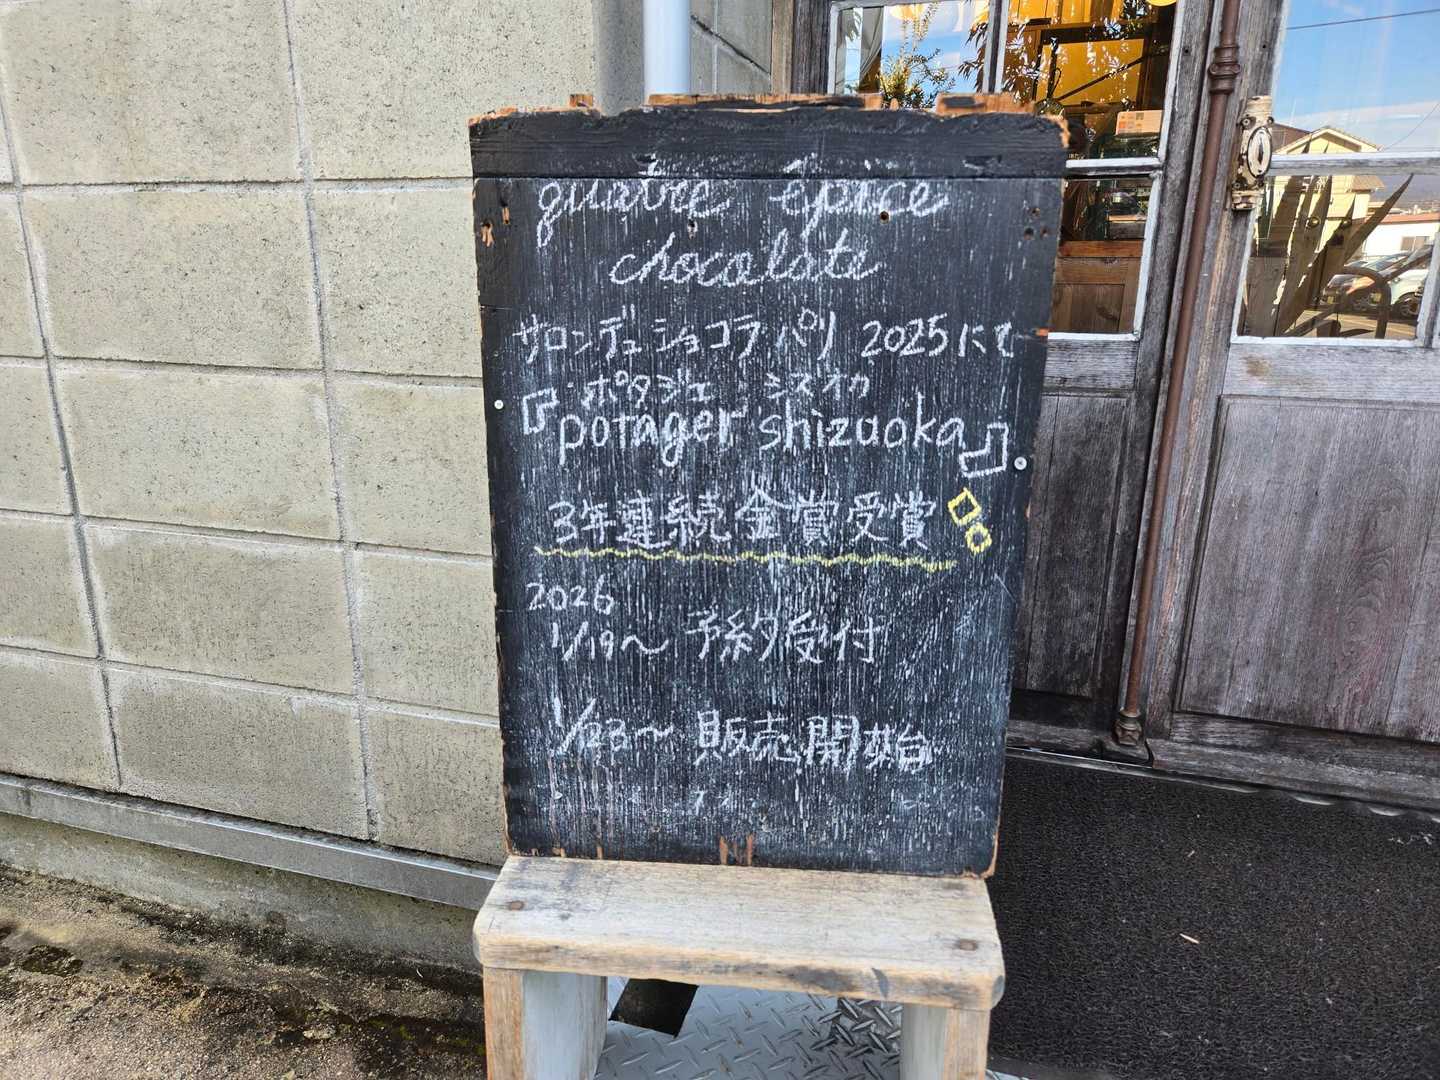 quatre épice
chocolate
サロンデュショコラパリ 2025にて
ポタジェ シズオカ
『potager shizuoka』
3年連続金賞受賞!!
2026
1/19〜 予約受付
1/23〜 販売開始